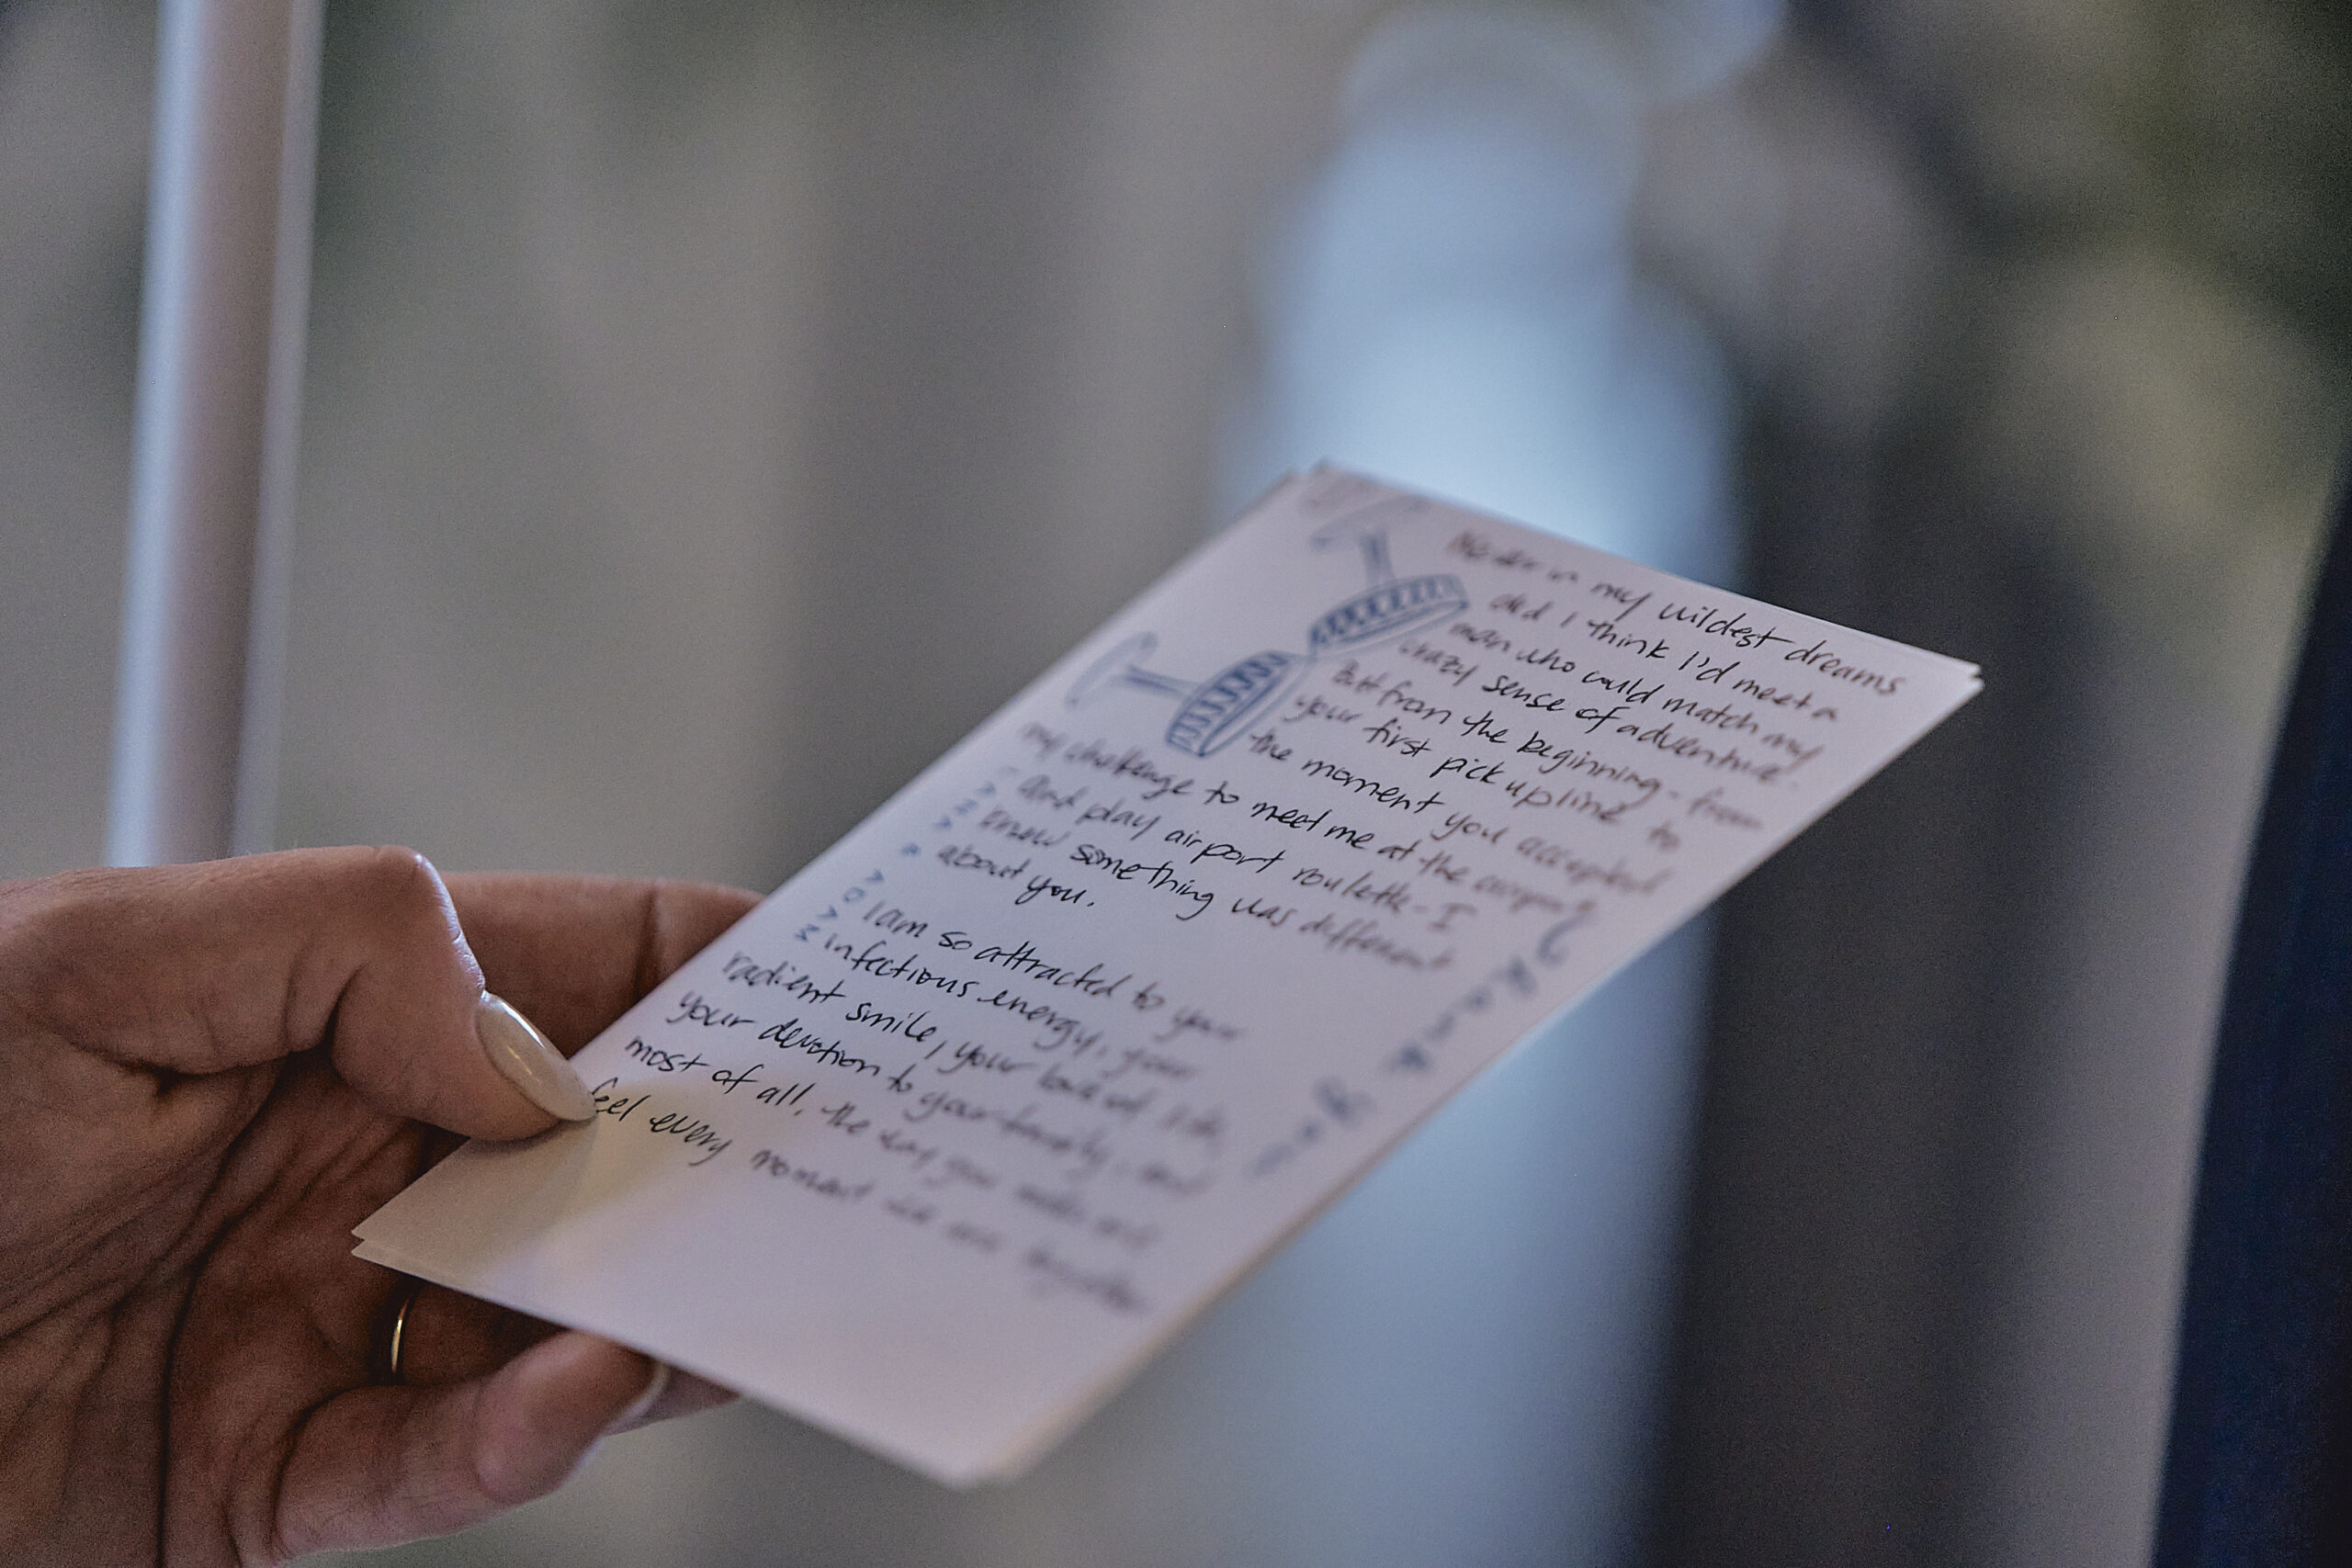 Never in my wildest dreams
did I think I'd meet a
man who could match my
crazy sense of adventure.
But from the beginning - from
your first pick up line to
the moment you accepted
my challenge to meet me at the airport
and play airport roulette - I
knew something was different
about you.
I am so attracted to your
infectious energy, your
radient smile, your love of life,
your devotion to your family, and
most of all, the way you make me
feel every moment we are together
& ADAM
Thank you